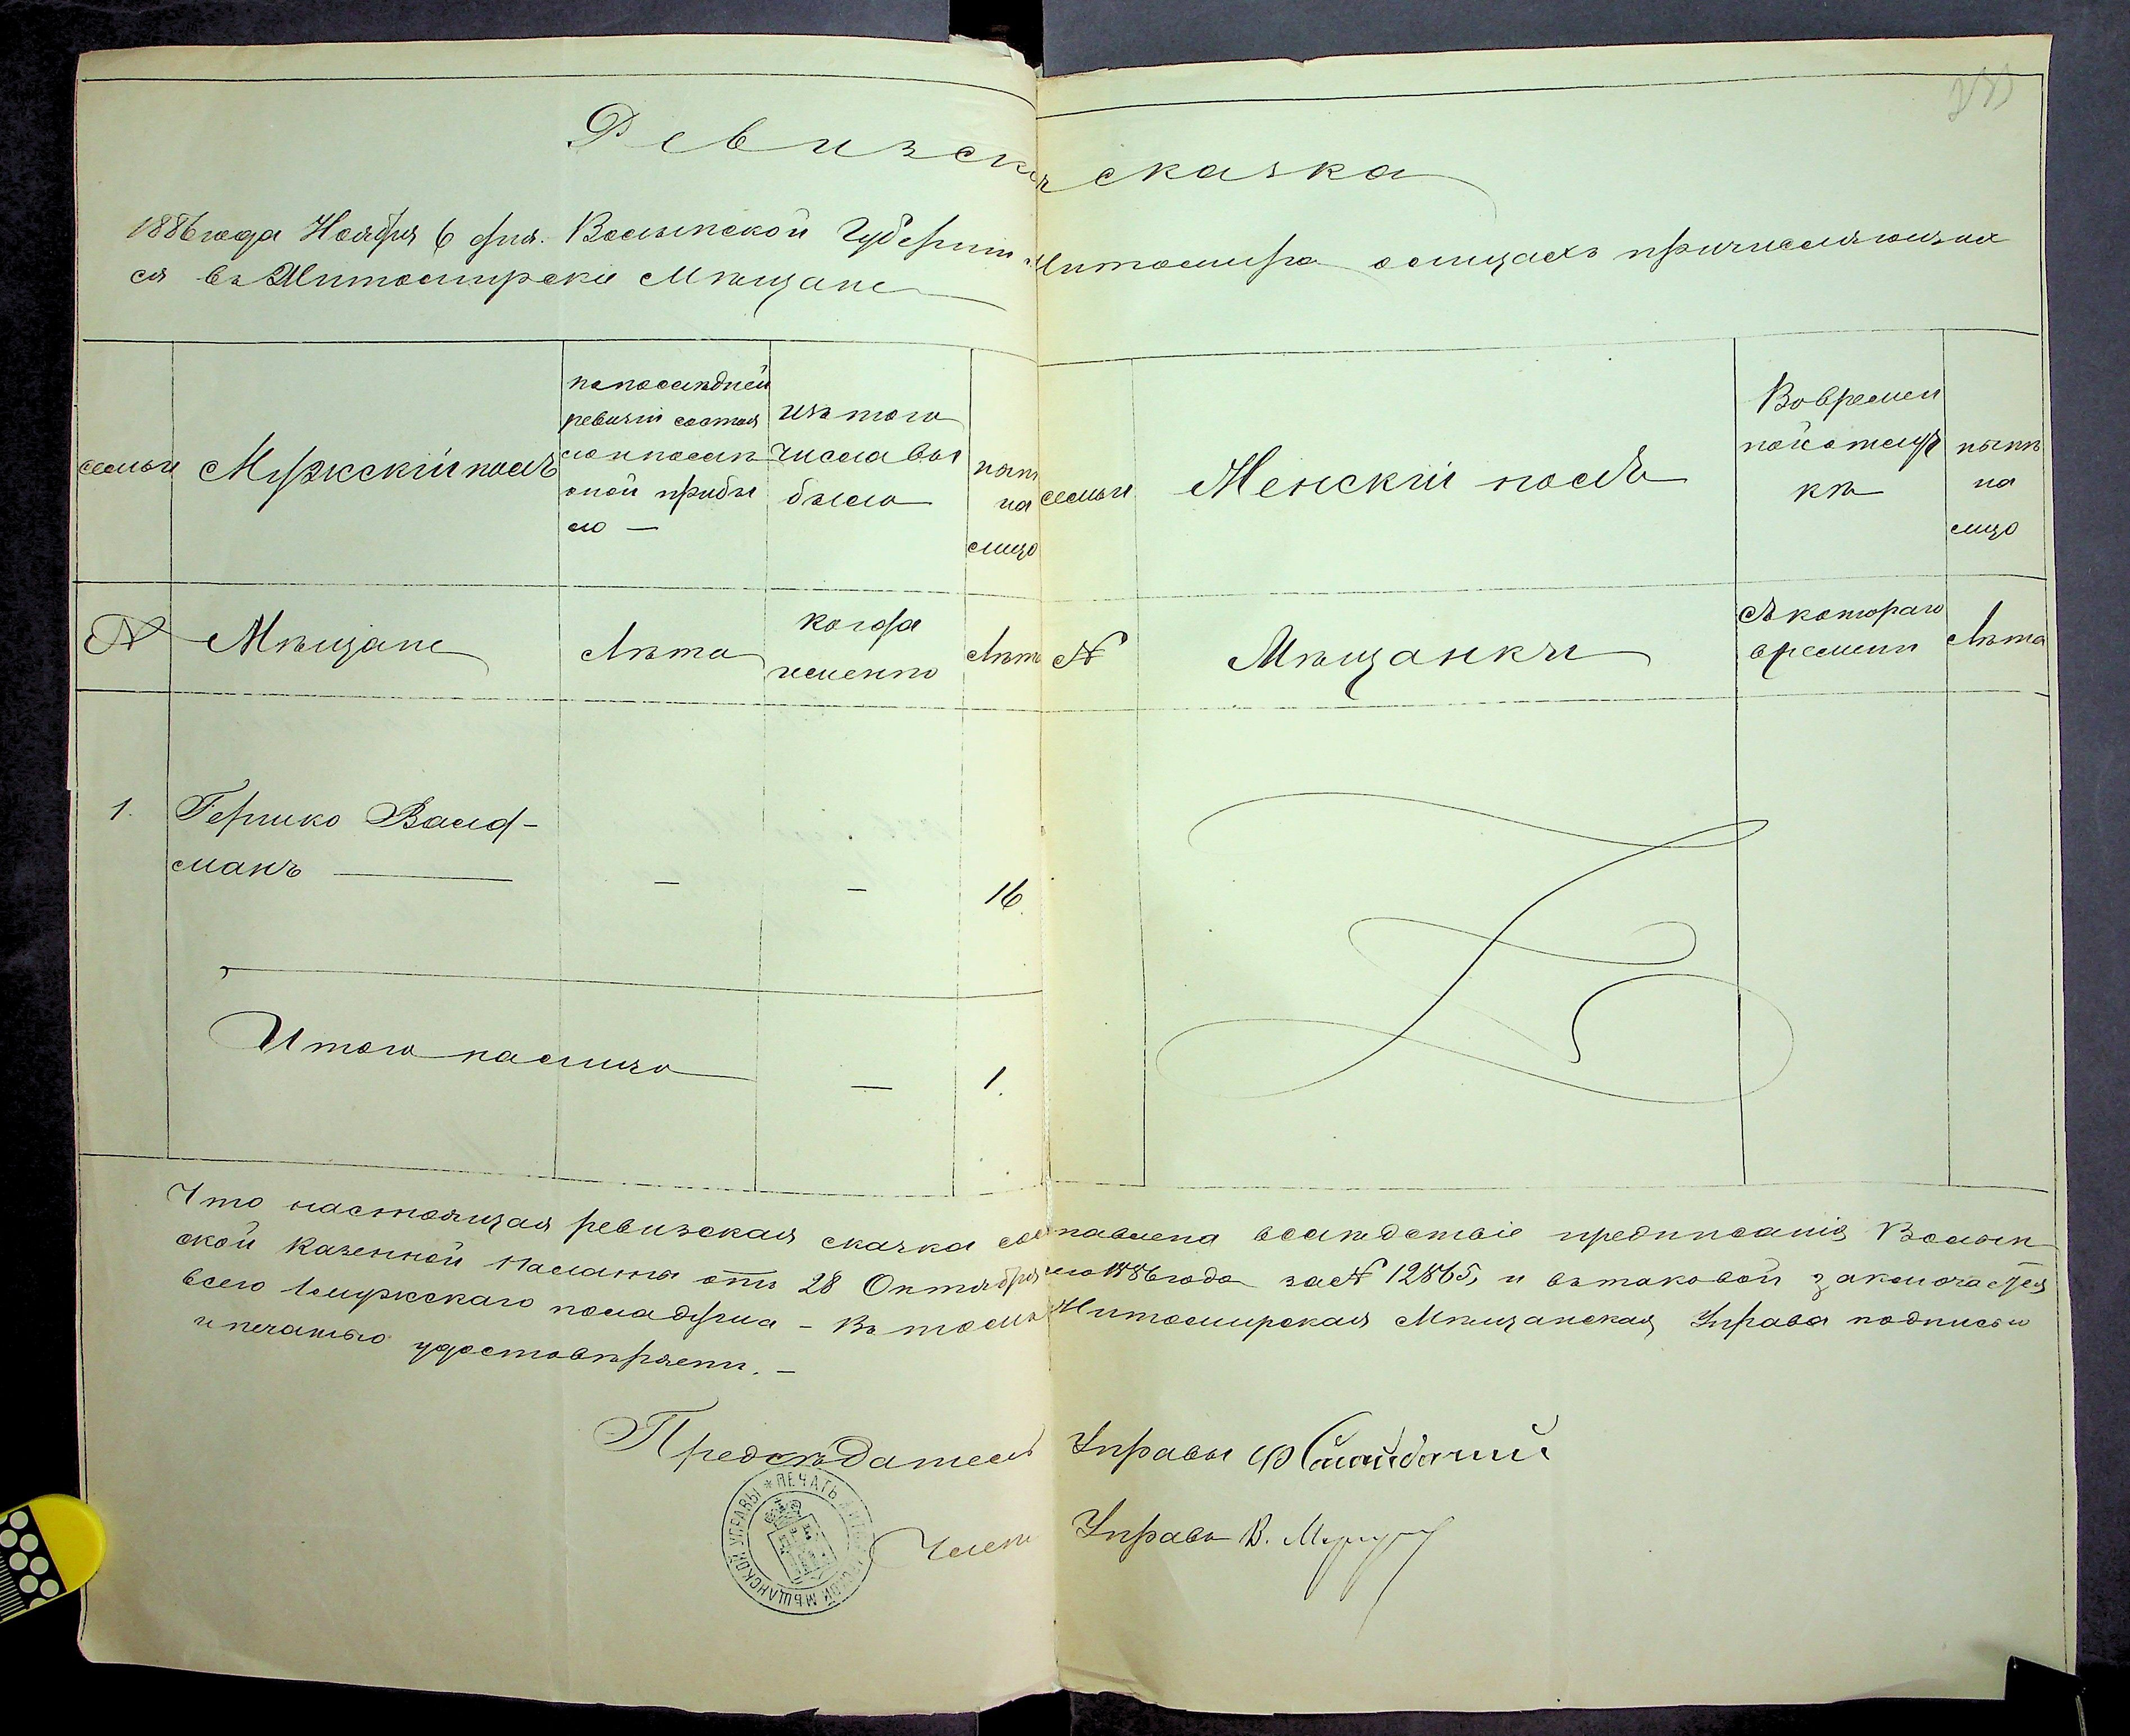 Ревизская сказка
1886 года Ноября 6 дня. Волынской Губернии Житомира о лицахъ причисляющих
ся въ Житомирскіе Мѣщане
семьи
Мужскій полъ
по послѣдней
ревизіи состоя
ло и послѣ
оной прибы
ло —
изъ того
числа вы
было
нынѣ
на
лицо
семьи
Женскій полъ
Во времен
ной отлуч
кѣ
нынѣ
на
лицо
N
Мѣщане
Лѣта
когда
именно
Лѣта
N
Мѣщанки
Съ котораго
времени
Лѣта
1.
Гершко Валд-
манъ
—
—
16
Итого на лицо
—
1.
Что настоящая ревизская сказка составлена вслѣдствіе предписанія Волын
ской Казенной Палаты отъ 28 Октября сего 1886 года за N 12865, и въ таковой заключается
всего 1 мужскаго пола душа - въ томъ Житомирская Мѣщанская Управа подписью
и печатью удостовѣряетъ. —
Предсѣдатель Управы
ПЕЧАТЬ ЖИТОМІРСКОЙ МѢЩАНСКОЙ УПРАВЫ
Членъ Управы В.